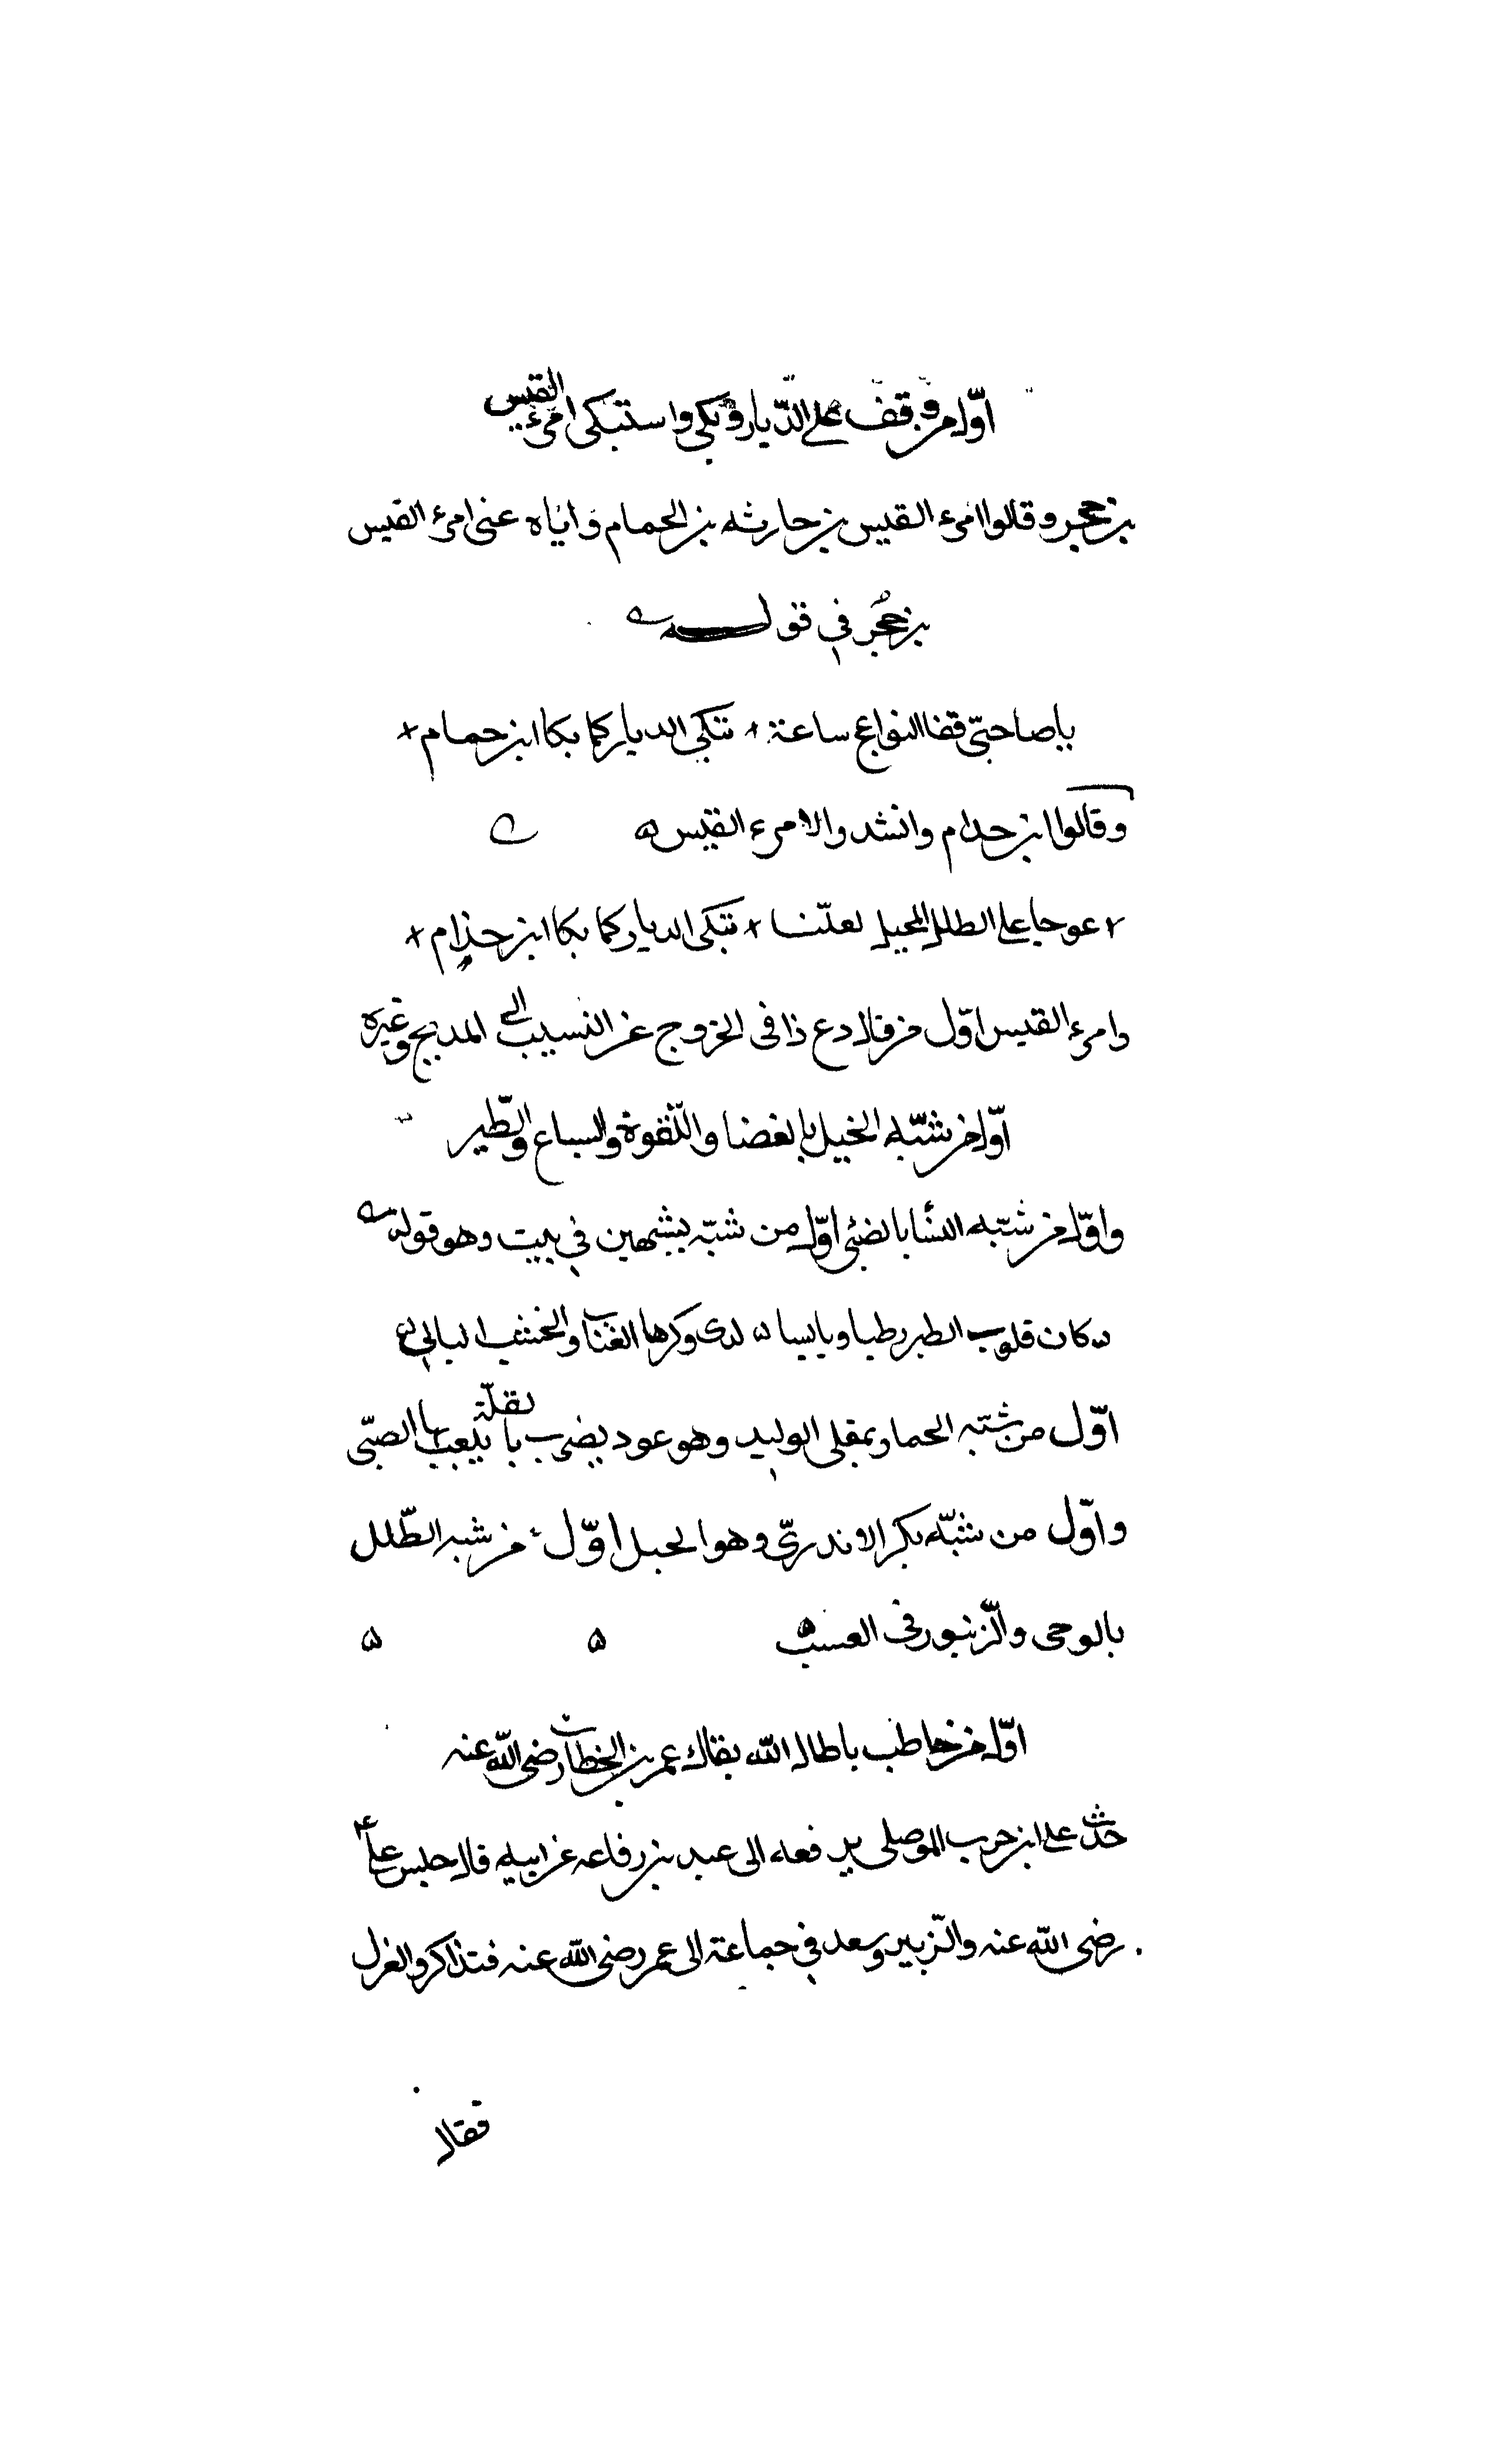 اوّل من وقف على الدّيار وبكى واستبكى امرئ القيس
بن حجر وقالوا امرء القيس بن حارثه بن الحمام واياه عنى امرئ القيس
بن حُجر في قوله
ياصاحبيّ قفا النواعج ساعة نبكي الديار كما بكا ابن حمام
وقالوا ابن حدام وانشدوا لامرء القيس
عوجا على الطلل المحيل لعلّنا نبكي الديار كما بكا ابن حذام
وامرء القيس اوّل من قال دع ذا في الخروج عن النسيب الى المديح وغيره
اوّل من شبّه الخيل بالعصا واللّقوة والسباع والطّير
واوّل من شبّه النسأ بالضبي اوّل من شبّه بشيهين في بيت وهو قوله
كان قلوب الطير رطبا ويابسا لدى وكرها العناب والخشف البالي
اوّل من شبّه الحمار بمقلى الوليد وهو عود يضرب با نقلّة يلعب بها الصبّي
واوّل من شبّه بكر الاندريّ وهو الحبل اوّل من شبه الطّلل
بالوحي والزّبور في العسب
اوّل من خاطب باطال الله بقاك عمر بن الخطاب رضى الله عنه
حدّث على ابن حرب الموصلي يرفعه الى عبيد بن رفاعه عن ابيه قال جلس علي
رضى الله عنه والزّبير وسعد في جماعة الى عمر رضى الله عنه فتذاكروا العزل
فقال